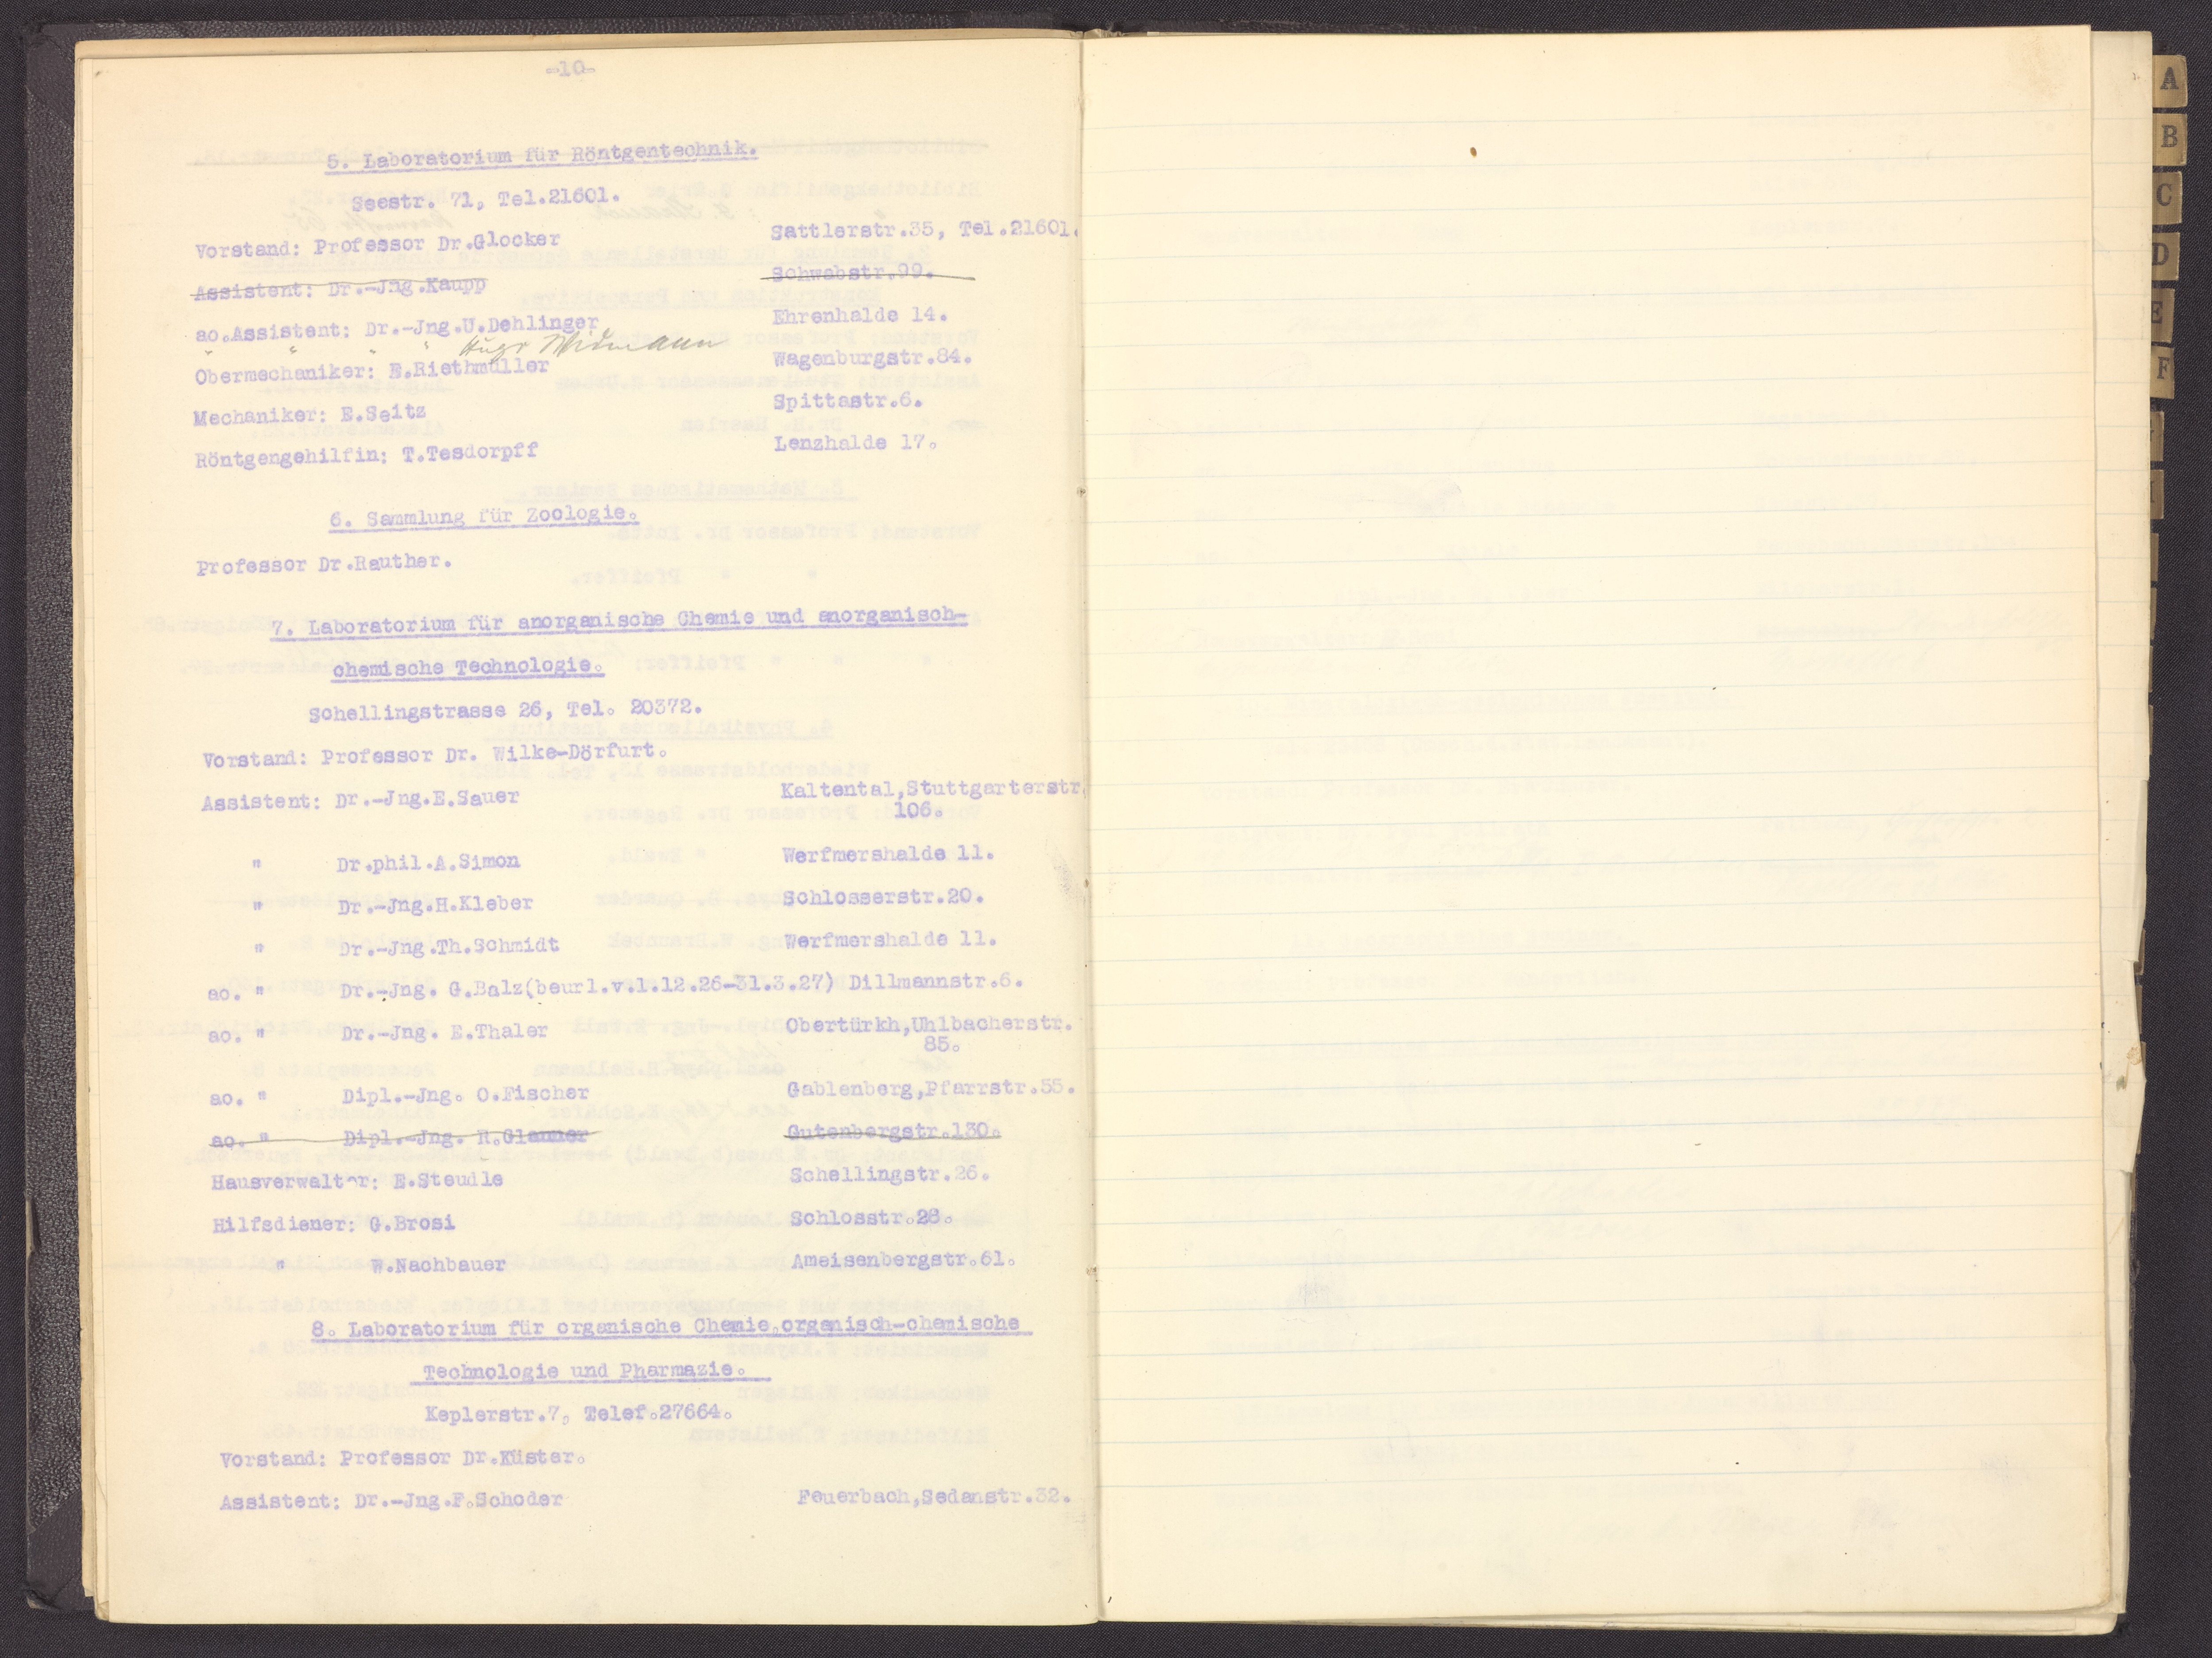 -10-
5. Laboratorium für Röntgentechnik.
Seestr. 71, Tel.21601.
Vorstand: Professor Dr.Glocker Sattlerstr.35, Tel.21601.
Assistent: Dr.-Jng.Kaupp Schwabstr.99.
ao.Assistent: Dr.-Jng.U.Dehlinger Ehrenhalde 14.
" " " " Hugo Widmann
Obermechaniker: E.Riethmüller Wagenburgstr.84.
Mechaniker: E.Seitz Spittastr.6.
Röntgengehilfin: T.Tesdorpff Lenzhalde 17.
6. Sammlung für Zoologie.
Professor Dr.Rauther.
7. Laboratorium für anorganische Chemie und anorganisch-
chemische Technologie.
Schellingstrasse 26, Tel. 20372.
Vorstand: Professor Dr. Wilke-Dörfurt.
Assistent: Dr.-Jng.E.Sauer Kaltental,Stuttgarterstr.
106.
" Dr.phil.A.Simon Werfmershalde 11.
" Dr.-Jng.H.Kleber Schlosserstr.20.
" Dr.-Jng.Th.Schmidt Werfmershalde 11.
ao. " Dr.-Jng. G.Balz(beurl.v.1.12.26-31.3.27) Dillmannstr.6.
ao. " Dr.-Jng. E.Thaler Obertürkh,Uhlbacherstr.
85.
ao. " Dipl.-Jng. O.Fischer Gablenberg,Pfarrstr.55.
ao. " Dipl.-Jng. R.Glauner Gutenbergstr.130.
Hausverwalt^r: E.Steudle Schellingstr.26.
Hilfsdiener: G.Brosi Schlosstr.28.
" W.Nachbauer Ameisenbergstr.61.
8. Laboratorium für organische Chemie,organisch-chemische
Technologie und Pharmazie.
Keplerstr.7, Telef.27664.
Vorstand: Professor Dr.Küster.
Assistent: Dr.-Jng.F.Schoder Feuerbach,Sedanstr.32.
A
B
C
D
E
F